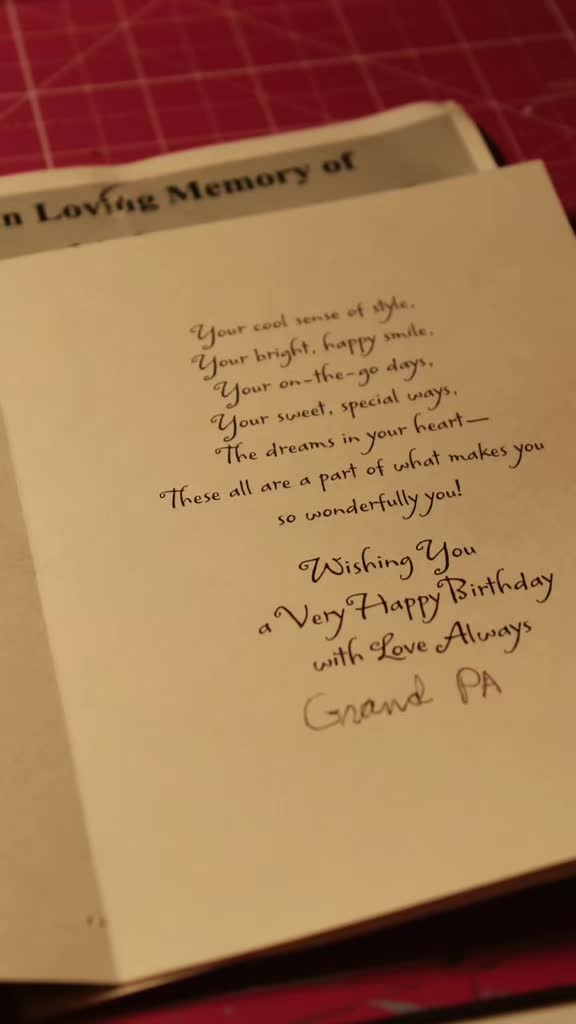 n Loving Memory of
Your cool sense of style,
Your bright, happy smile,
Your on-the-go days,
Your sweet, special ways,
The dreams in your heart—
These all are a part of what makes you
so wonderfully you!
Wishing You
a Very Happy Birthday
with Love Always
Grand PA